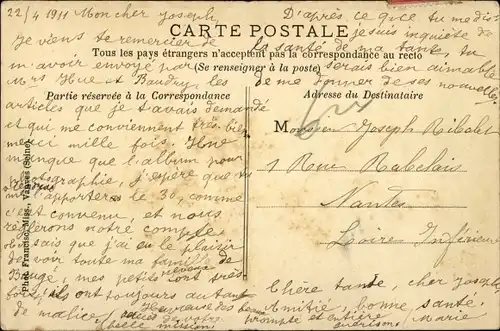 22/4 1911 Mon cher Joseph,
Je viens te remercier de
m'avoir envoyé par
Mrs Hue et Baudry, les
articles que je t'avais demandé
et qui me conviennent très bien
merci mille fois. Il ne
manque que l'album pour
photographie, j'espère que tu
m'apportera le 30, comme
c'est convenu, et nous
règlerons notre compte
Je sais que j'ai eu le plaisir
de voir toute ma famille de
Baugé, mes petits neveux sont très
ils ont toujours autant
de malice,
belle mission
D'après ce que tu me dis
je suis inquiète de
la santé de ma tante, tu
serais bien aimable
de me donner de ses nouvelles
CARTE POSTALE
Tous les pays étrangers n'acceptent pas la correspondance au recto
(Se renseigner à la poste)
Partie réservée à la Correspondance
Adresse du Destinataire
Phot. Francisc, Miss., Vanves (Seine)
Monsieur Joseph
1 Rue Rabelais
Nantes
Loire Inférieure
Chère tante, cher Joseph
Amitié, bonne santé,
prompte et entière guérison.
Marie